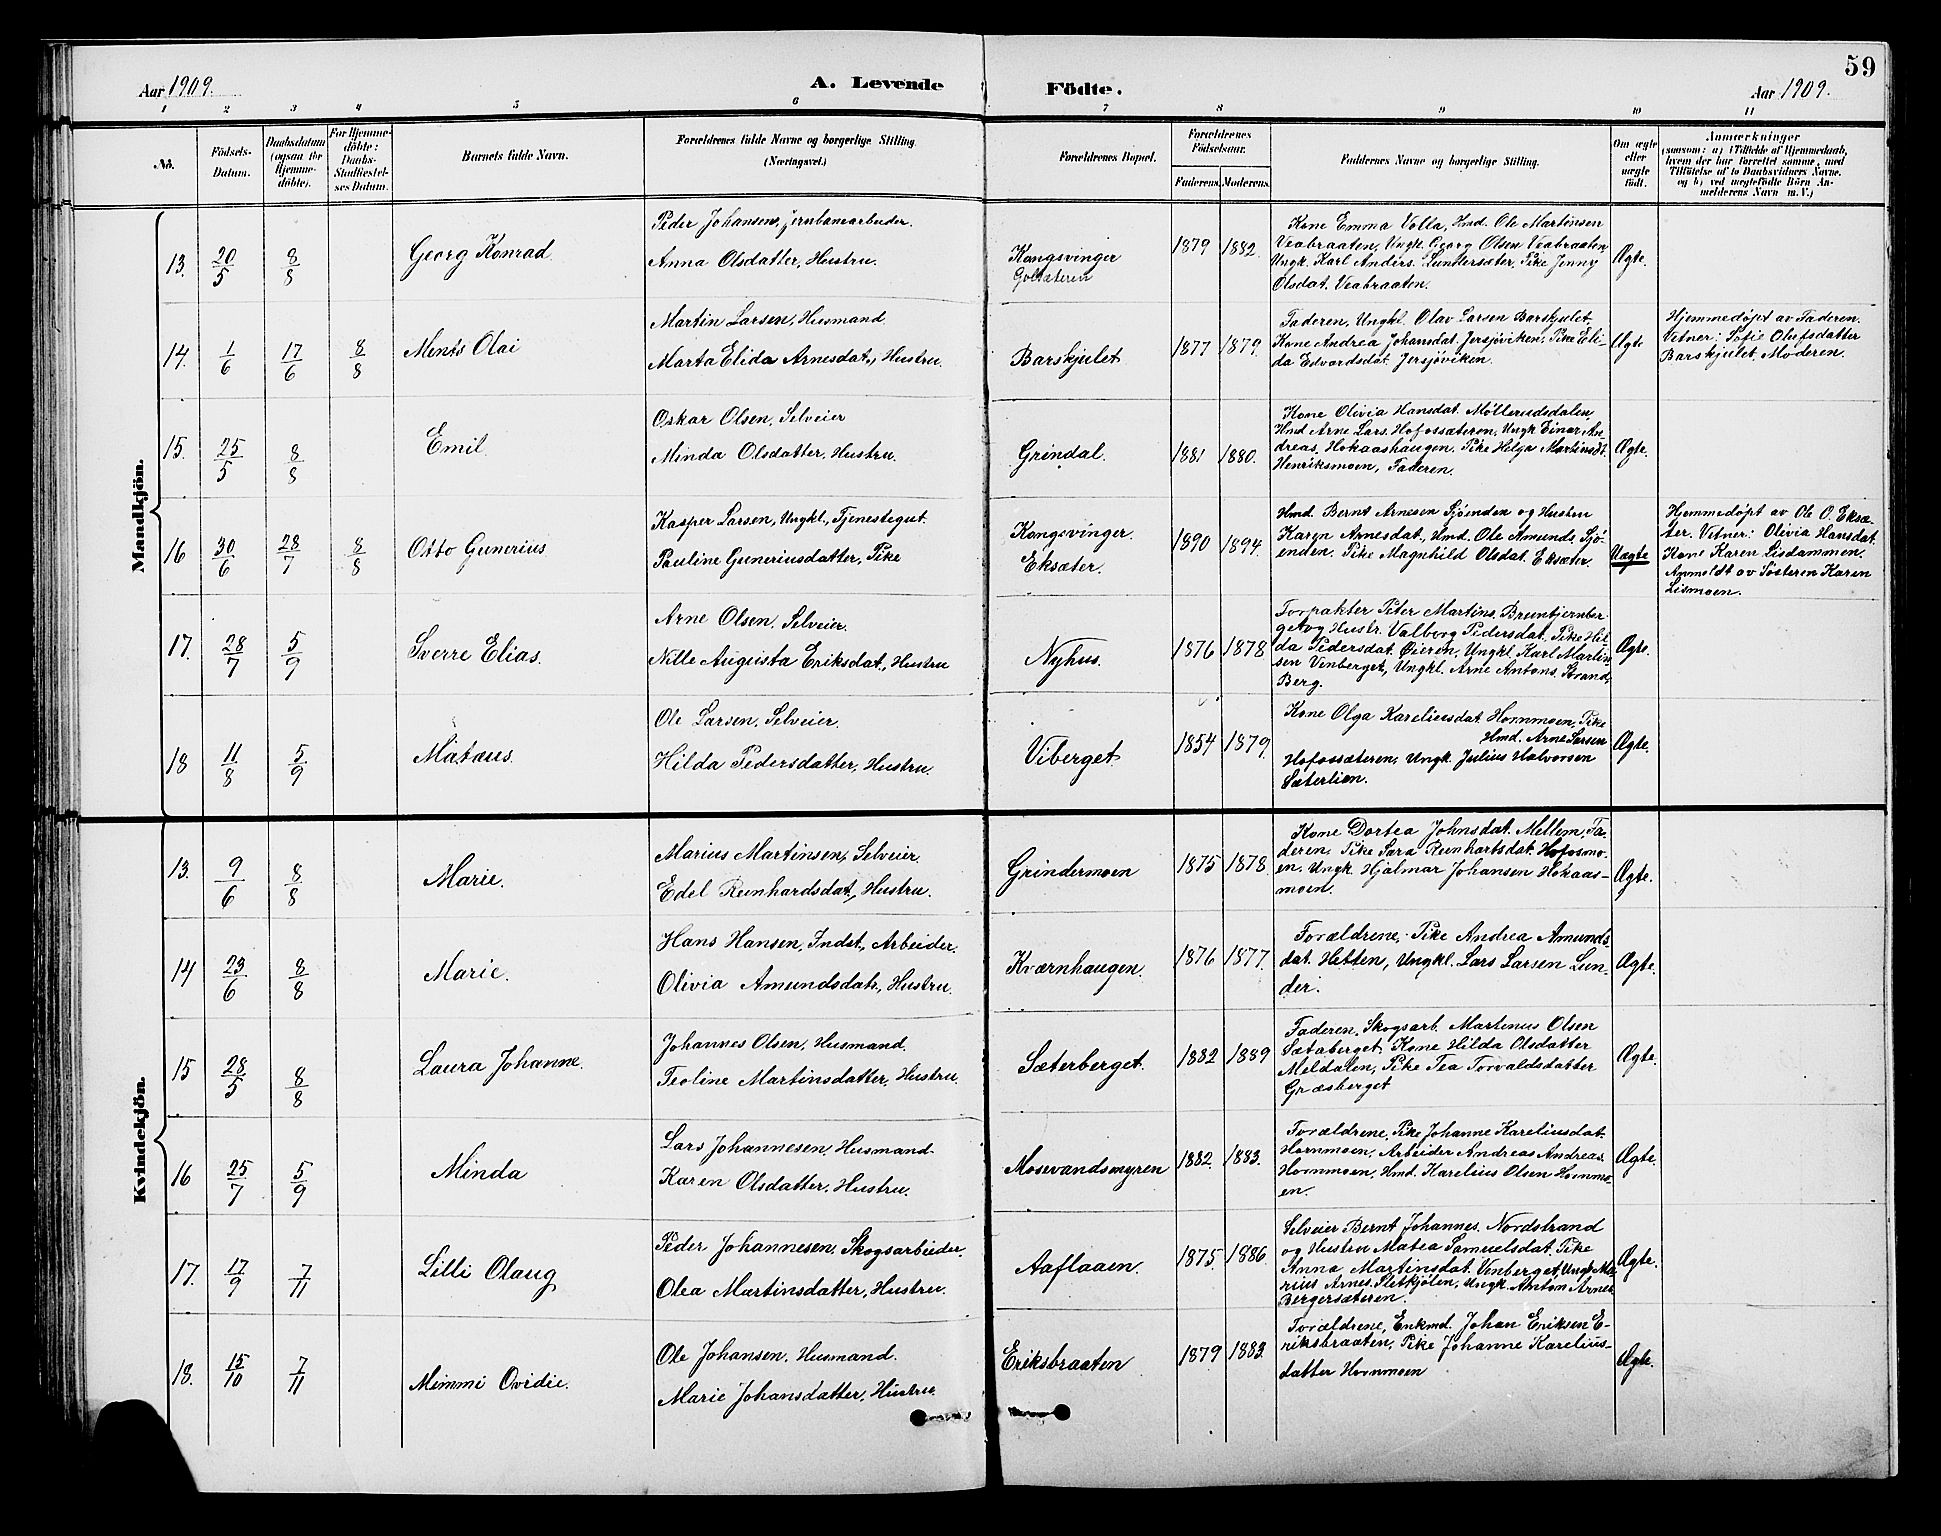 59
Aar 1909. A. Levende Födte. Aar 1909.
1 2 3 4 5 6 7 8 9 10 11
No.
Födsels-
Datum.
Daabsdatum
(ogsaa for
Hjemme-
döbte).
For Hjemme-
döbte:
Daabs-
Stadfæstel-
ses Datum.
Barnets fulde Navn.
Forældrenes fulde Navne og borgerlige Stilling
(Næringsvei.)
Forældrenes Bopæl.
Forældrenes
Födselsaar.
Faderens. Moderens.
Faddernes Navne og borgerlige Stilling.
Om ægte
eller
uægte
født.
Anmærkninger
(saasom: a) i Tilfælde af Hjemmedaab,
hvem der har forrettet samme, med
Tilföielse af to Daabsvidners Navne,
og b) ved uægtefödte Börn An-
melderens Navn m. V.)
Mandkjön.
13. 20/5 8/8
Georg Konrad
Peder Johansen, jernbanearbeider.
Anna Olsdatter, Hustru.
Kongsvinger
1879 1882.
Kone Emma Volla, Hmd. Ole Martinsen
Veabraaten, Ungk. Georg Olsen Veabraaten
Ungk. Karl Anders. Lundersæter. Pike Jenny
Olsdat. Veabraaten.
Ægte.
14. 1/6 17/6 8/8
Ments Olai
Martin Larsen, Husmand.
Marta Elida Arnesdat., Hustru.
Barskjulet
1877 1879.
Faderen, Ungkl. Olav Larsen Barskjulet.
Kone Andrea Johansdat. Jersjöviken, Pike Eli-
da Edvardsdat. Jersjöviken.
Ægte
Hjemmedøpt av Faderen.
Vitner: Sofie Olufsdatter
Barskjulet, Moderen.
15. 25/5 8/8
Emil
Oskar Olsen, Selveier
Minda Olsdatter, Hustru.
Grindal.
1881 1880.
Kone Olivia Hansdat. Møllerudsdalen,
Hmd Arne Lars. Hofossæteren, Ungk Einar An-
dreas. Hokaashaugen. Pike Helga Martinsdt.
Henriksmoen, Faderen.
Ægte.
16 30/6 28/7 8/8
Otto Gunerius
Kasper Larsen, Ungkl., Tjenestegut.
Pauline Guneriusdatter, Pike
Kongsvinger.
Eksæter.
1890 1894.
Hmd. Bernt Arnesen Sjöenden og Hustru
Karen Arnesdat., Hmd. Ole Amunds. Sjö-
enden. Pike Magnhild Olsdat. Eksæter.
Uægte
Hjemmedøpt av Ole O. Eksæ-
ter. Vitner: Olivia Hansdat.
Kone Karen Lisdammen.
Anmeldt av Søsteren Karen
Lismoen.
17. 28/7 5/9
Sverre Elias.
Arne Olsen, Selveier.
Nille Augusta Eriksdat., Hustru
Nyhus.
1876 1878
Forpakter Peter Martins. Bruntjernber
get og Hustr. Valborg Pedersdat. Pike Hil-
da Pedersdat. Øieren, Ungkl. Karl Martin
sen Vinberget, Ungkl. Arne Antons. Strand,
Berg.
Ægte.
18 11/8 5/9
Matæus.
Ole Larsen, Selveier.
Hilda Pedersdatter, Hustru.
Viberget
1854 1879.
Kone Olga Kareliusdat. Hornmoen, Pike
Hmd. Arne Larsen
Hofossæteren, Ungk. Julius Halvorsen
Sæterlien.
Ægte.
Kvindekjön.
13. 9/6 8/8
Marie.
Marius Martinsen, Selveier.
Edel Reinhardsdat., Hustru.
Grindermoen
1875 1878
Kone Dortea Johnsdat. Mellem, Fa-
deren, Pike Sara Reinhartsdat. Hofosmo-
en, Ungk. Hjalmar Johansen Hokaas-
moen.
Ægte.
14 23/6 8/8
Marie.
Hans Hansen, Indst., Arbeider.
Olivia Amundsdatr., Hustru.
Kværnhaugen.
1876 1877.
Forældrene, Pike Andrea Amunds-
dat. Hetten, Ungkl. Lars Larsen Lun-
der.
Ægte.
15 28/5 8/8
Laura Johanne.
Johannes Olsen, Husmand.
Teoline Martinsdatter, Hustru.
Sæterberget.
1882 1889
Faderen, Skogsarb. Martinus Olsen
Sætaberget, Kone Hilda Olsdatter
Meldalen, Pike Tea Torvaldsdatter
Græsberget
Ægte.
16 25/7 5/9
Minda
Lars Johannesen, Husmand.
Karen Olsdatter, Hustru.
Mosevandsmyren
1882. 1883.
Forældrene, Pike Johanne Kareliusdat.
Hornmoen, Arbeider Andreas Andreas.
Hornmoen, Hmd. Karelius Olsen Hornmo-
en.
Ægte.
17. 17/9 7/11
Lilli Olaug
Peder Johannesen, Skogsarbeider.
Olea Martinsdatter, Hustru.
Aaflaaen.
1875. 1886.
Selveier Bernt Johannes. Nordstrand
og Hustru Matea Samuelsdat. Pike
Anna Martinsdat. Vinberget, Ungk Ma-
rius Arnes. Sletkjölen, Ungk. Anton Arnes.
Bergersæteren.
Ægte.
18. 15/10 7/11
Mimmi Ovidie.
Ole Johansen, Husmand.
Marie Johansdatter, Hustru
Eriksbraaten
1879 1883.
Forældrene, Enkmd. Johan Eriksen E-
riksbraaten, Pike Johanne Karelius-
datter Hornmoen
Ægte.